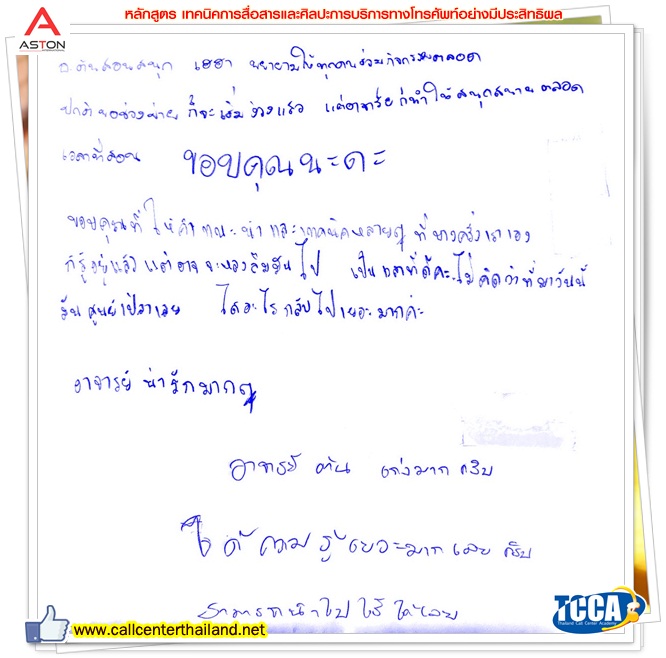 ASTON
หลักสูตร เทคนิคการสื่อสารและศิลปะการบริการทางโทรศัพท์อย่างมีประสิทธิผล
อ.ต้นสอนสนุก เฮฮา พยายามให้ทุกคนร่วมกิจกรรมตลอด
ปกติพอช่วงบ่าย ก็จะเริ่มง่วงแล้ว แต่อาจารย์ก็ทำให้สนุกสนานตลอด
เวลาที่สอน ขอบคุณนะคะ
ขอบคุณที่ให้คำแนะนำและเทคนิคหลายๆ ที่บางครั้งเราเอง
ก็รู้อยู่แล้ว แต่อาจจะหลงลืมมันไป เป็น ที่ดีค่ะ ไม่คิดว่าที่มาวันนี้
มันสูญเปล่าเลย ได้อะไรกลับไปเยอะมากค่ะ
อาจารย์น่ารักมากๆ
อาจารย์ ต้น เก่งมาก ครับ
ได้ความรู้เยอะมากเลยครับ
สามารถนำไปใช้ได้เลย
www.callcenterthailand.net
TCCA
Thailand Call Center Academy